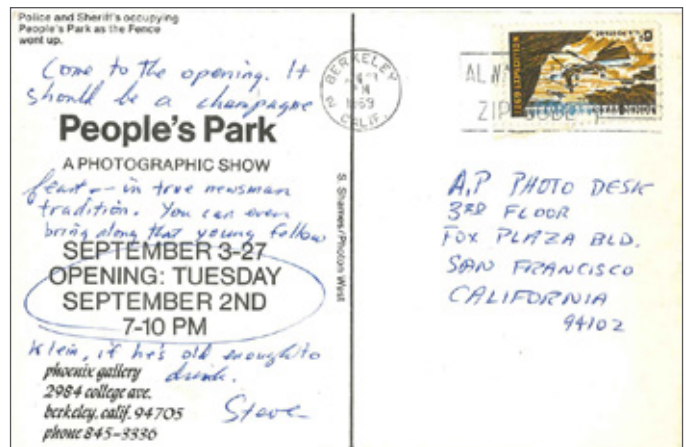 Police and Sheriff's occupying
People's Park as the Fence
went up.
Come to the opening. It
should be a champagne
People's Park
A PHOTOGRAPHIC SHOW
feast — in true newsman
tradition. You can even
bring along that young fellow
SEPTEMBER 3-27
OPENING: TUESDAY
SEPTEMBER 2ND
7-10 PM
Klein, if he's old enough to
drink.
Steve
phoenix gallery
2984 college ave.
berkeley, calif. 94705
phone 845-3336
S. Shames/Photon West
BERKELEY
PM
1969
CALIF.
ZIP
1869 EXPEDITION
6¢
A.P PHOTO DESK
3RD FLOOR
FOX PLAZA BLD.
SAN FRANCISCO
CALIFORNIA
94102